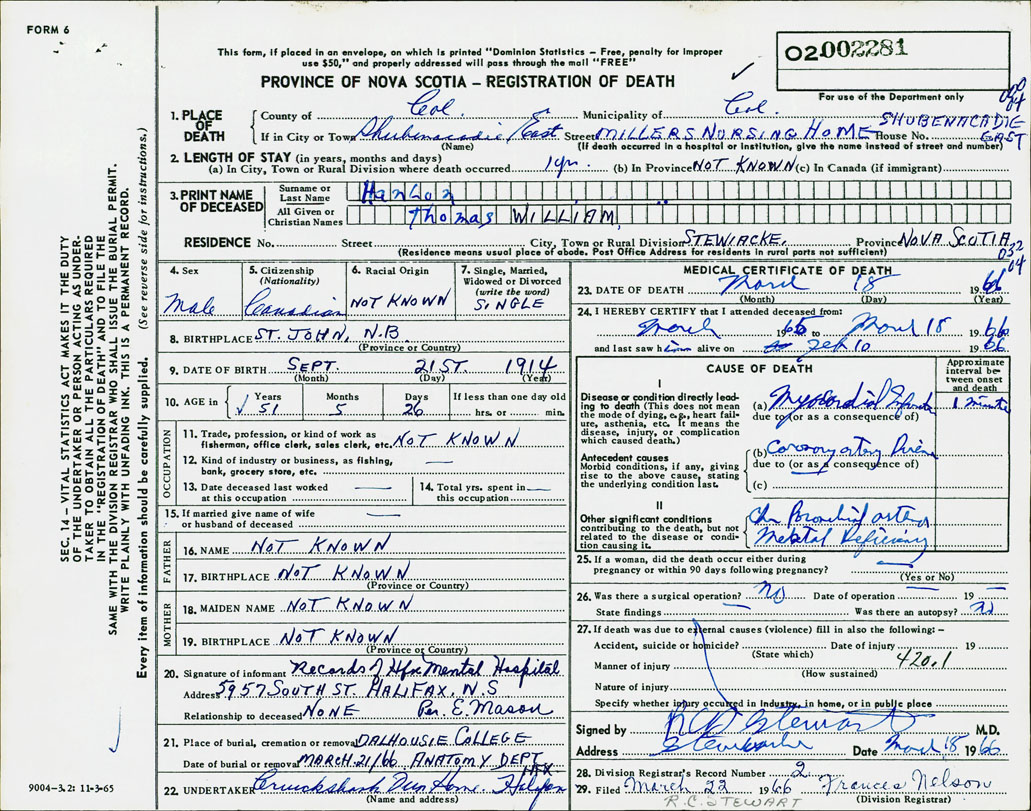 FORM 6
This form, if placed in an envelope, on which is printed "Dominion Statistics – Free, penalty for improper
use $50," and properly addressed will pass through the mail "FREE"
PROVINCE OF NOVA SCOTIA – REGISTRATION OF DEATH
02 002281
For use of the Department only
1. PLACE OF DEATH
County of Col. Municipality of Col.
If in City or Town Shubenacadie East Street MILLERS NURSING HOME House No. SHUBENACADIE EAST
(Name) (If death occurred in a hospital or institution, give the name instead of street and number)
2. LENGTH OF STAY (in years, months and days)
(a) In City, Town or Rural Division where death occurred 1 yr. (b) In Province NOT KNOWN (c) In Canada (if immigrant)
3. PRINT NAME OF DECEASED
Surname or Last Name Hanlon
All Given or Christian Names Thomas WILLIAM
RESIDENCE No. Street City, Town or Rural Division STEWIACKE, Province NOVA SCOTIA
(Residence means usual place of abode. Post Office Address for residents in rural parts not sufficient)
032
04
4. Sex
Male
5. Citizenship
(Nationality)
Canadian
6. Racial Origin
NOT KNOWN
7. Single, Married,
Widowed or Divorced
(write the word)
SINGLE
8. BIRTHPLACE ST. JOHN, N.B.
(Province or Country)
9. DATE OF BIRTH SEPT. 21ST. 1914
(Month) (Day) (Year)
10. AGE in Years 51 Months 5 Days 26 If less than one day old hrs. or min.
OCCUPATION
11. Trade, profession, or kind of work as
fisherman, office clerk, sales clerk, etc. NOT KNOWN
12. Kind of industry or business, as fishing,
bank, grocery store, etc. —
13. Date deceased last worked
at this occupation —
14. Total yrs. spent in
this occupation —
15. If married give name of wife
or husband of deceased —
FATHER
16. NAME NOT KNOWN
17. BIRTHPLACE NOT KNOWN
(Province or Country)
MOTHER
18. MAIDEN NAME NOT KNOWN
19. BIRTHPLACE NOT KNOWN
(Province or Country)
20. Signature of informant Records of Hfx Mental Hospital
Address 5957 SOUTH ST. HALIFAX, N.S
Relationship to deceased NONE Per. E. Mason
21. Place of burial, cremation or removal DALHOUSIE COLLEGE
Date of burial or removal MARCH 21/66 ANATOMY DEPT
HFX
22. UNDERTAKER Cruickshank Fun Home. Halifax
(Name and address)
MEDICAL CERTIFICATE OF DEATH
23. DATE OF DEATH March 18 1966
(Month) (Day) (Year)
24. I HEREBY CERTIFY that I attended deceased from:
March 1965 to March 18 1966
and last saw him alive on Feb 10 1966
CAUSE OF DEATH
Approximate
interval be-
tween onset
and death
I
Disease or condition directly lead-
ing to death (This does not mean
the mode of dying, e.g., heart fail-
ure, asthenia, etc. It means the
disease, injury, or complication
which caused death.)
(a) Myocardial Infarct 1 minute
due to (or as a consequence of)
Antecedent causes
Morbid conditions, if any, giving
rise to the above cause, stating
the underlying condition last.
(b) Coronary artery Disease
due to (or as a consequence of)
(c)
II
Other significant conditions
contributing to the death, but not
related to the disease or condi-
tion causing it.
Chr Bronchial asthma
Mental Deficiency
25. If a woman, did the death occur either during
pregnancy or within 90 days following pregnancy? —
(Yes or No)
26. Was there a surgical operation? No Date of operation — 19 —
State findings — Was there an autopsy? No
27. If death was due to external causes (violence) fill in also the following: –
Accident, suicide or homicide? Date of injury 19
(State which)
420.1
Manner of injury
(How sustained)
Nature of injury
Specify whether injury occurred in industry, in home, or in public place
Signed by R C Stewart M.D.
Address Stewiacke Date March 18 1966
28. Division Registrar's Record Number 2
29. Filed March 22 1966 Frances Nelson
(Division Registrar)
R.C. STEWART
SEC. 14 – VITAL STATISTICS ACT MAKES IT THE DUTY
OF THE UNDERTAKER OR PERSON ACTING AS UNDER-
TAKER TO OBTAIN ALL THE PARTICULARS REQUIRED
IN THE "REGISTRATION OF DEATH" AND TO FILE THE
SAME WITH THE DIVISION REGISTRAR WHO SHALL ISSUE THE BURIAL PERMIT.
WRITE PLAINLY WITH UNFADING INK. THIS IS A PERMANENT RECORD.
Every item of information should be carefully supplied. (See reverse side for instructions.)
9004–3.21 11-3-65